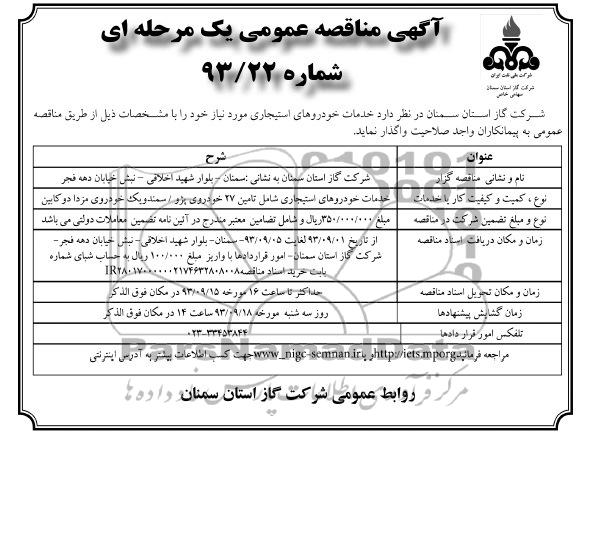 آگهی مناقصه عمومی یک مرحله ای
شماره ۹۳/۲۲
شرکت ملی گاز ایران
شرکت گاز استان سمنان
سهامی خاص
شرکت گاز استان سمنان در نظر دارد خدمات خودروهای استیجاری مورد نیاز خود را با مشخصات ذیل از طریق مناقصه
عمومی به پیمانکاران واجد صلاحیت واگذار نماید.
عنوان شرح
نام و نشانی مناقصه گزار شرکت گاز استان سمنان به نشانی :سمنان – بلوار شهید اخلاقی – نبش خیابان دهه فجر
نوع ، کمیت و کیفیت کار یا خدمات خدمات خودروهای استیجاری شامل تامین ۲۷ خودروی پژو / سمندویک خودروی مزدا دوکابین
نوع و مبلغ تضمین شرکت در مناقصه مبلغ ۳۵۰/۰۰۰/۰۰۰ریال و شامل تضامین معتبر مندرج در آئین نامه تضمین معاملات دولتی می باشد
زمان و مکان دریافت اسناد مناقصه از تاریخ ۹۳/۰۹/۰۱ لغایت ۹۳/۰۹/۰۵- سمنان- بلوار شهید اخلاقی- نبش خیابان دهه فجر-
شرکت گاز استان سمنان- امور قراردادها با واریز مبلغ ۱۰۰/۰۰۰ ریال به حساب شبای شماره
IR۲۸۰۱۷۰۰۰۰۰۰۲۱۷۴۶۳۲۸۰۸۰۰۸ بابت خرید اسناد مناقصه
زمان و مکان تحویل اسناد مناقصه حداکثر تا ساعت ۱۶ مورخه ۹۳/۰۹/۱۵ در مکان فوق الذکر
زمان گشایش پیشنهادها روز سه شنبه مورخه ۹۳/۰۹/۱۸ ساعت ۱۴ در مکان فوق الذکر
تلفکس امور قرار دادها ۰۲۳-۳۳۴۵۳۸۴۴
جهت کسب اطلاعات بیشتر به آدرس اینترنتی www_nigc-semnan.ir و یا http://iets.mporg مراجعه فرمائید
روابط عمومی شرکت گاز استان سمنان
ParsNamadData